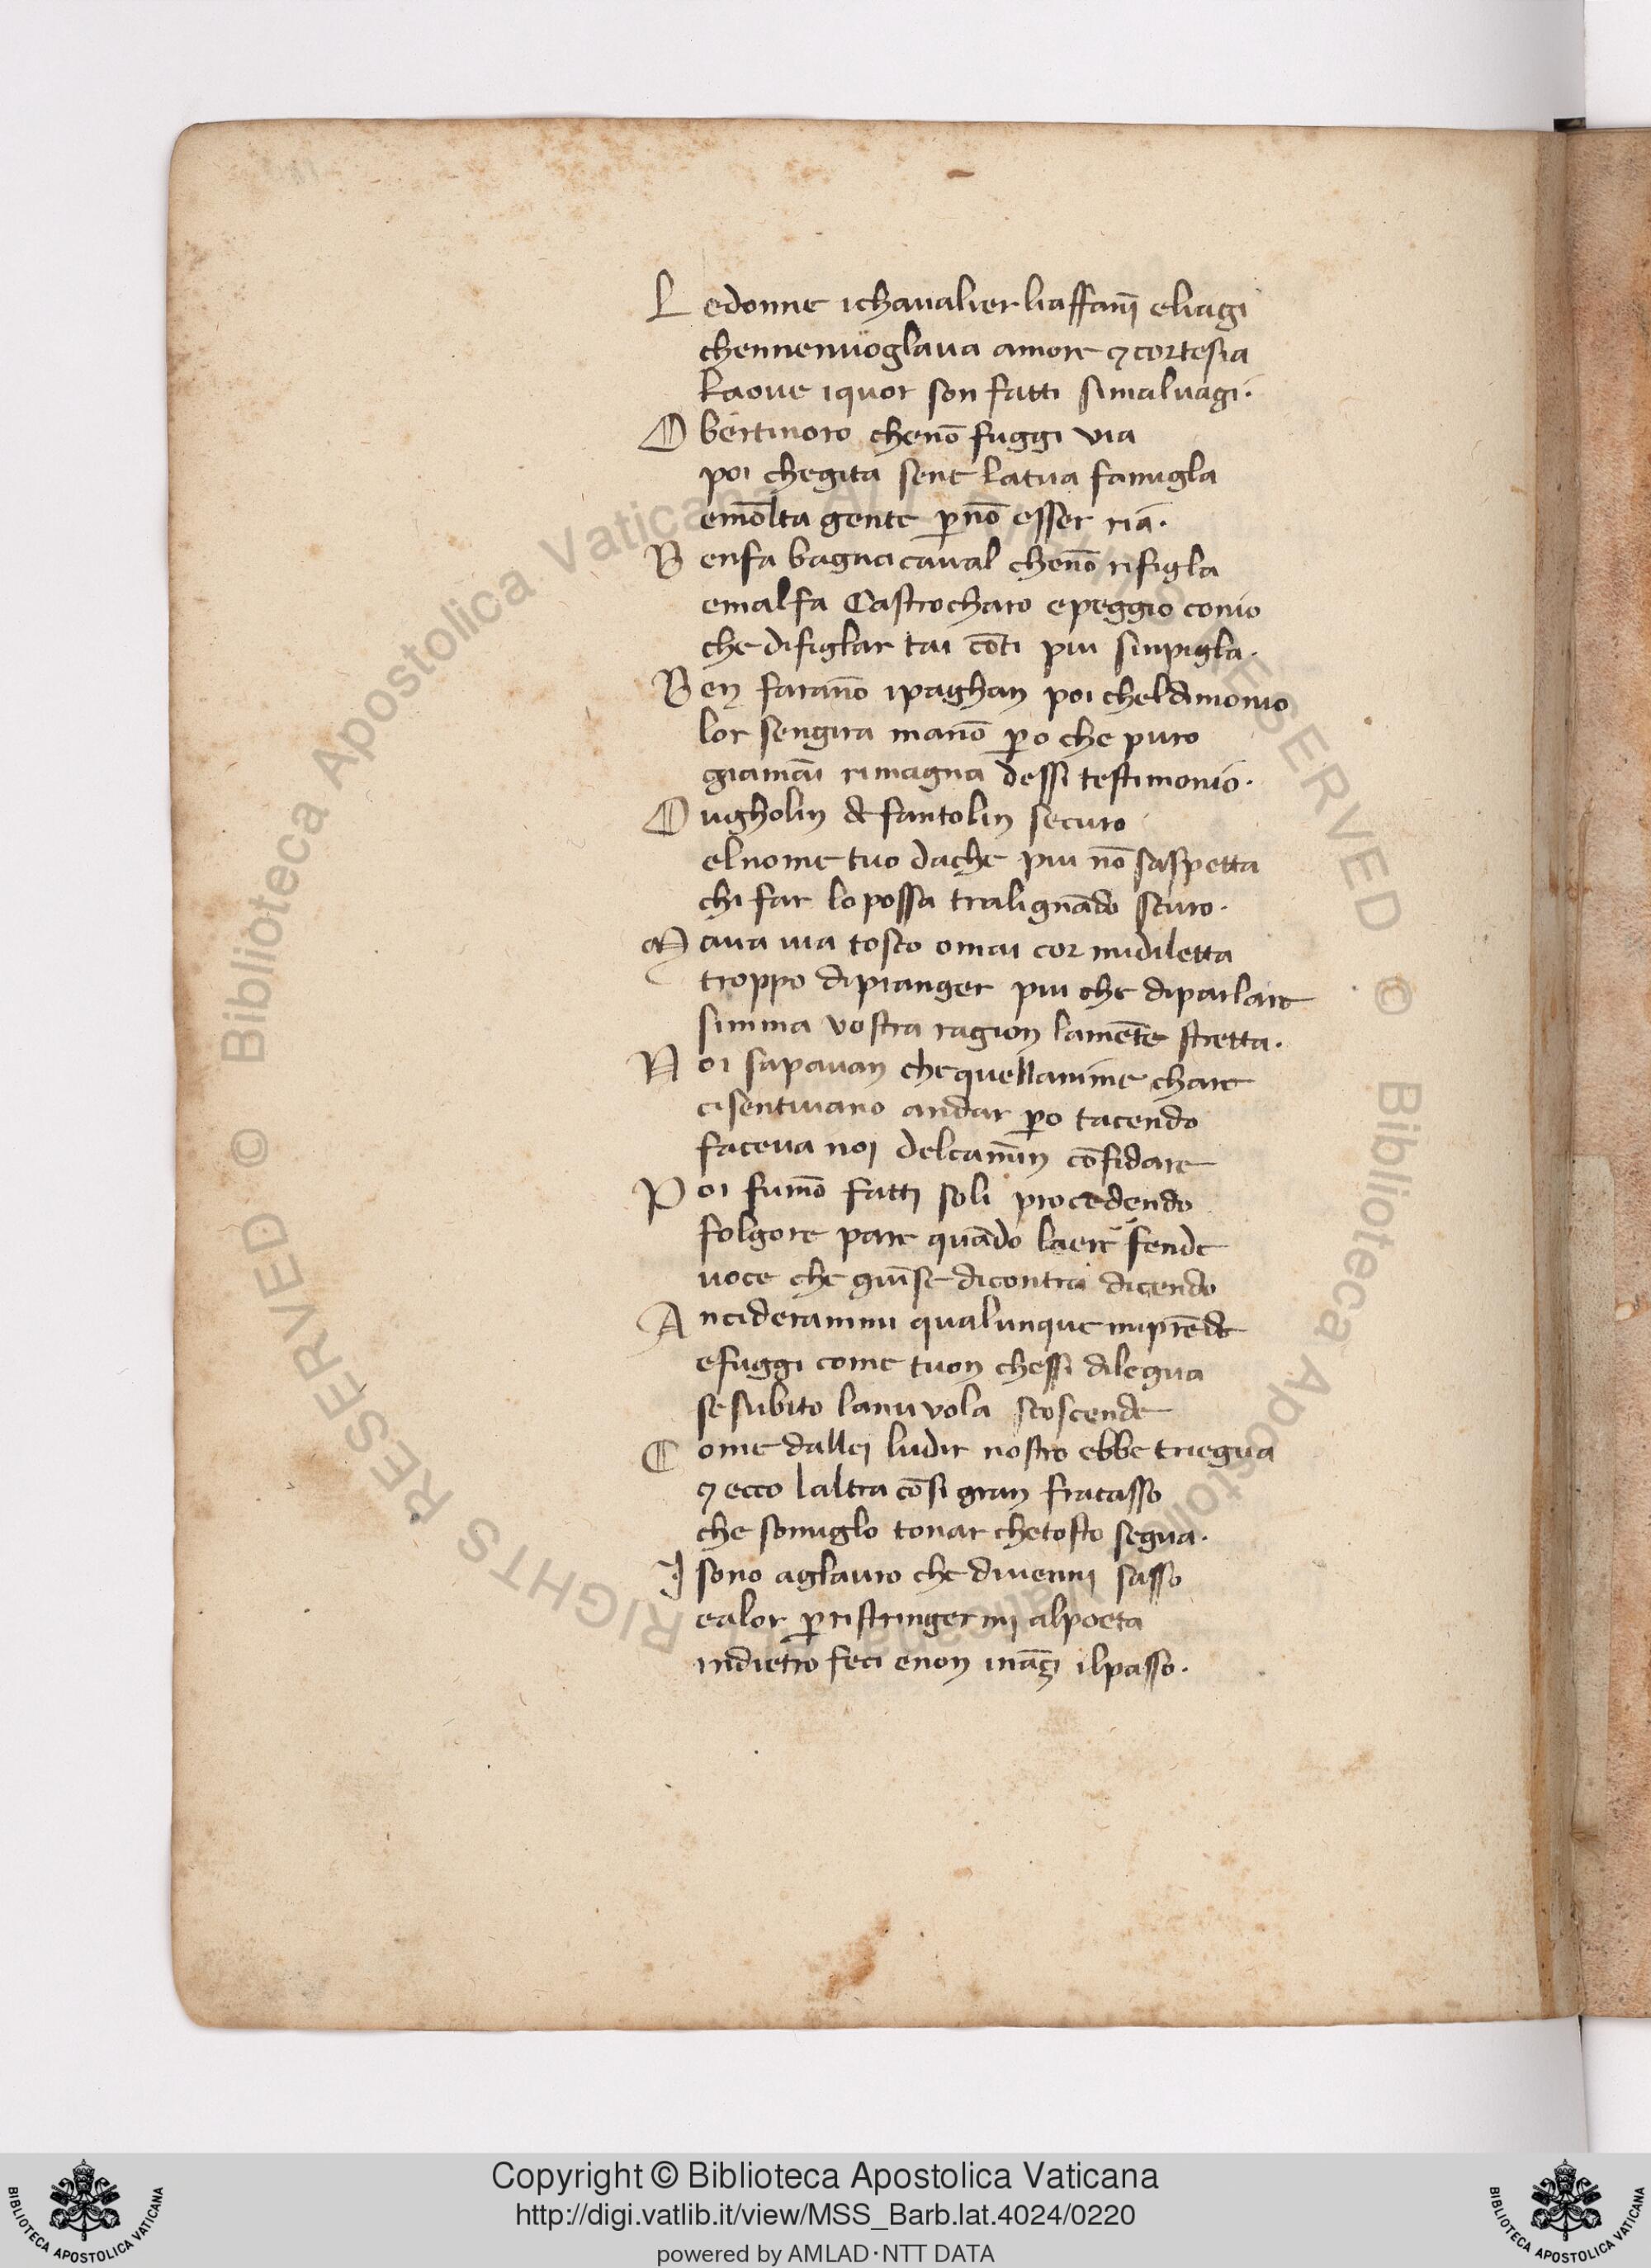 Ledonne ichaualier liaffanņ eliagi
chennenuoglaua amore ⁊ cortesia
laoue iquor son fatti simaluagi·
O bertinoro chenō fuggi via
poi chegita sene latua famigla
emōlta gente p̱nō esser ria·
Benfa bagnacaual chenō rifigla
emalfa Castrocharo epeggio conio
che difiglar tai cōti piu sinpigla·
Ben farānō ipaghan poi cheldimonio
lor sengira manō p̱o che puro
giamāi rimagna dessi testimonio·
O ugholin de fantolin securo
elnome tuo dache piu nō saspetta
chi far lo possa tralignādo scuro·
Maua uia tosco omai cor midiletta
troppo dipianger piu che diparlare
simma vostra ragion lamēte stretta·
Noi sapauan chequellanime chare
cisentiuano andar p̱o tacendo
faceua noi delcamin cōfidare
Poi fumō fatti soli procedendo
folgore parue quādo laere fende
uoce che giūse dicontra dicendo
Anciderammi qualunque miprēde
efuggi come tuon chessi dilegua
se subito lanuuola scoscende
Come dallei ludir nostro ebbe triegua
⁊ ecco laltra cōsi gran fracasso
che somiglo tonar chetosto segua·
I sono aglauro che diuenni sasso
ealor p̱ristringermi alpoeta
indietro feci enonināçi ilpasso·
© Biblioteca Apostolica Vaticana ALL RIGHTS RESERVED © Biblioteca Apostolica Vaticana ALL RIGHTS RESERVED
Copyright © Biblioteca Apostolica Vaticana
http://digi.vatlib.it/view/MSS_Barb.lat.4024/0220
powered by AMLAD·NTT DATA
BIBLIOTECA APOSTOLICA VATICANA
BIBLIOTECA APOSTOLICA VATICANA